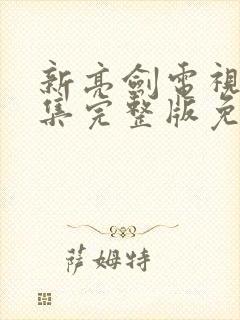 新亮劍電視
集完整版免
萨姆特